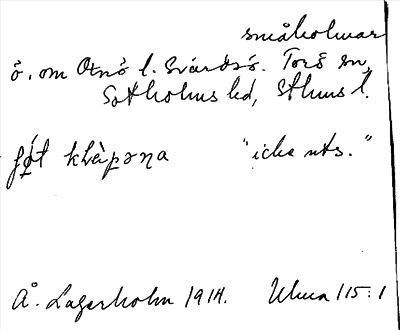 småholmar
ö. om Otnö l. Svärdsö. Torö sn,
Sotholms hd, Sthms l.
fǿt klæ̀pəṇa "icke uts."
Å. Lagerholm 1914. Uluva 115:1